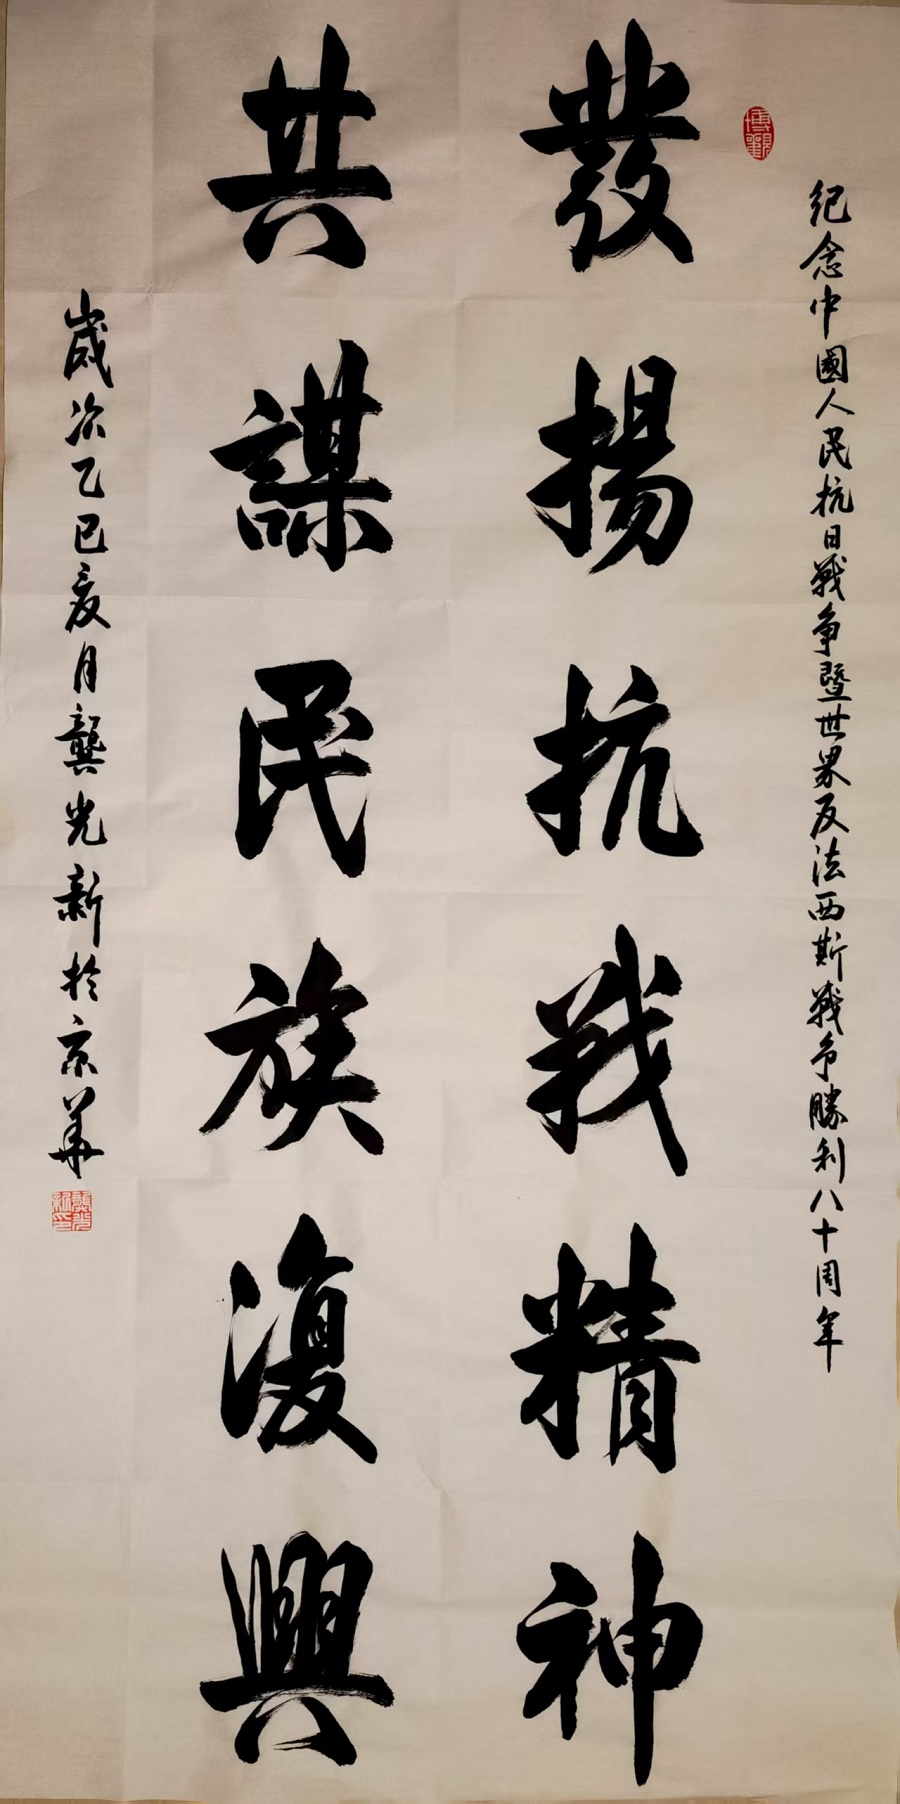 紀念中國人民抗日戰爭暨世界反法西斯戰爭勝利八十周年
發揚抗戰精神
共謀民族復興
歲次乙巳夏月龔光新於京華
博觀
龔光新印